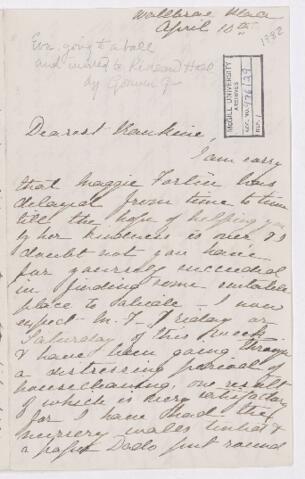 Wallbrae Place
April 10th
1882
Eva going to a ball
and invited to Rideau Hall
by
MCGILL UNIVERSITY
ARCHIVES
ACC. NO. 976/29
REF. 1
Dearest Rankine,
I am sorry
that Maggie Fortin has
delayed from time to time
till the hope of helping you
by her kindness is over, I
doubt not you have
for yourself succeeded
in finding some suitable
place to
I now
expect M. F. Friday or
Saturday of this week.
I have been going through
a distressing period of
housecleaning, one result
of which is very satisfactory
for I have had the
nursery walls tinted &
a paper Dado put round